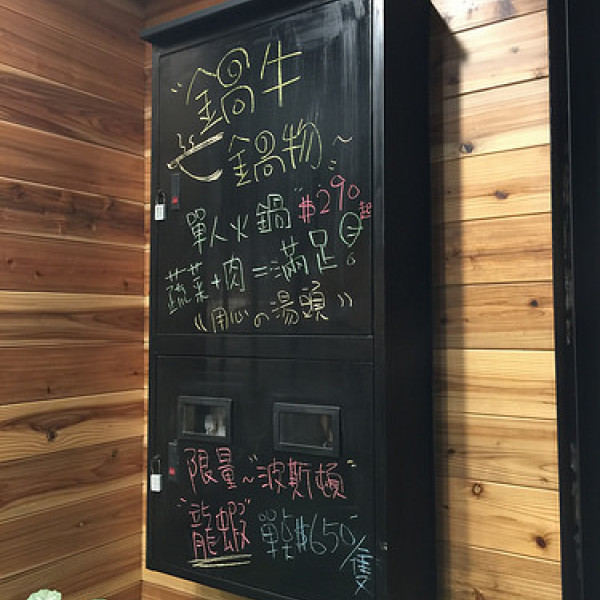 "鍋牛
鍋物~"
單人火鍋 "$290起
蔬菜+肉=滿足
《用心の湯頭》
限量~"波斯頓"
"龍蝦" 單點$650/隻